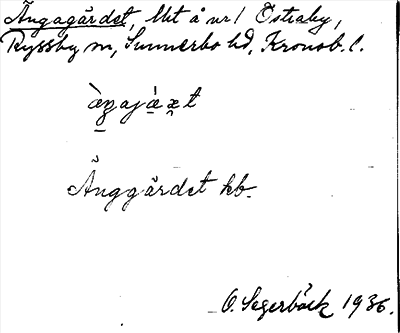 Ängagärdet, lht å nr 1 Östraby,
Ryssby sn, Sunnerbo hd, Kronob. l.
Änggärdet hb.
O. Segerbäck 1936.